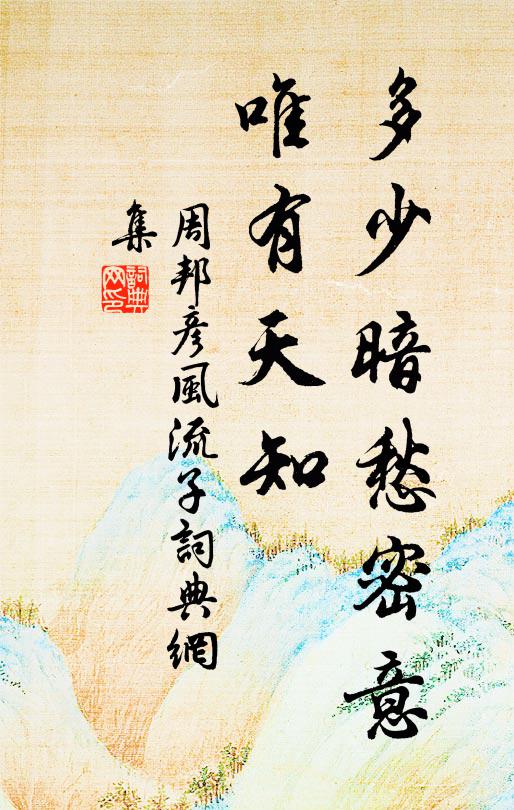 多少暗愁密意
唯有天知
周邦彦風流子詞典網
集
詞典网印